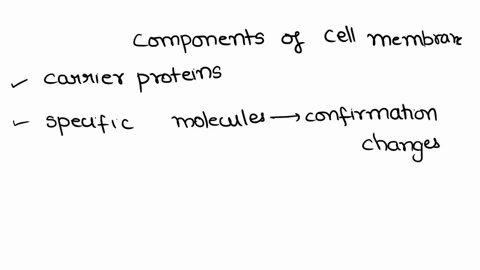 components of cell membrane
✓ carrier proteins
✓ specific molecules → confirmation
changes